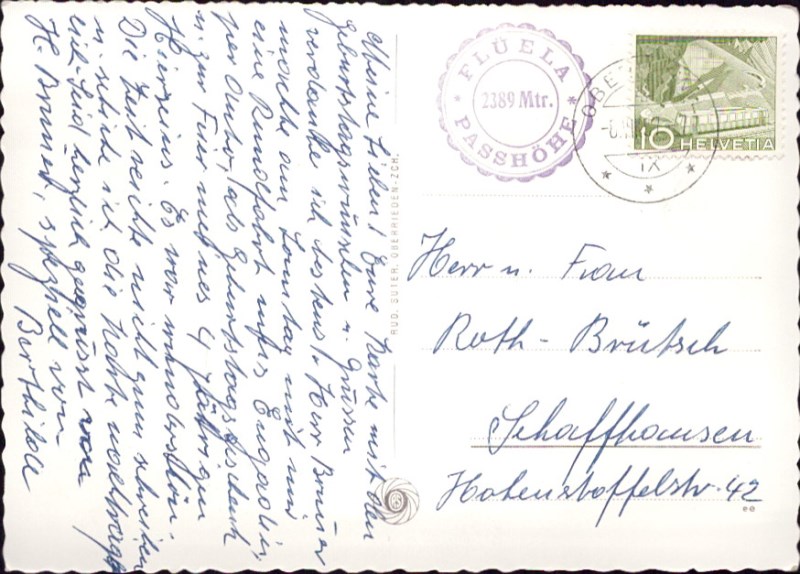 Meine Lieben! Eure Karte mit den
Geburtstagswünschen u. Grüssen
verdanke ich bestens. Herr
machte am Samstag mit mir
eine Rundfahrt ins Engadin,
per Auto, als Geburtstagsgeschenk
u. zur Feier meines 4 jährigen
Hierseins. Es war wunderschön.
Die Zeit reichte nicht zum schreiben
u. schicke ich die Karte
Seid herzlich gegrüsst von
H. speziell von
RUD. SUTER, OBERRIEDEN-ZCH.
FLÜELA
2389 Mtr.
PASSHÖHE
IX
10 HELVETIA
Herr u. Frau
Roth-Brütsch
Schaffhausen
Hohenstoffelstr. 42